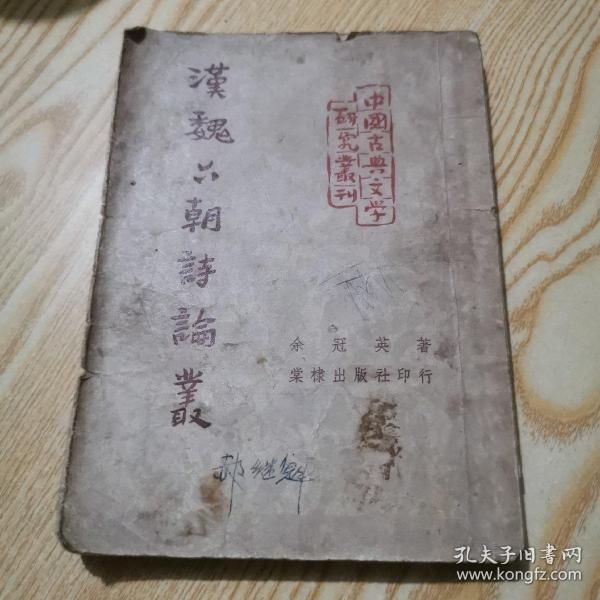 漢魏六朝詩論叢
中國古典文学
研究叢刊
余冠英著
棠棣出版社印行
孔夫子旧书网
www.kongfz.com